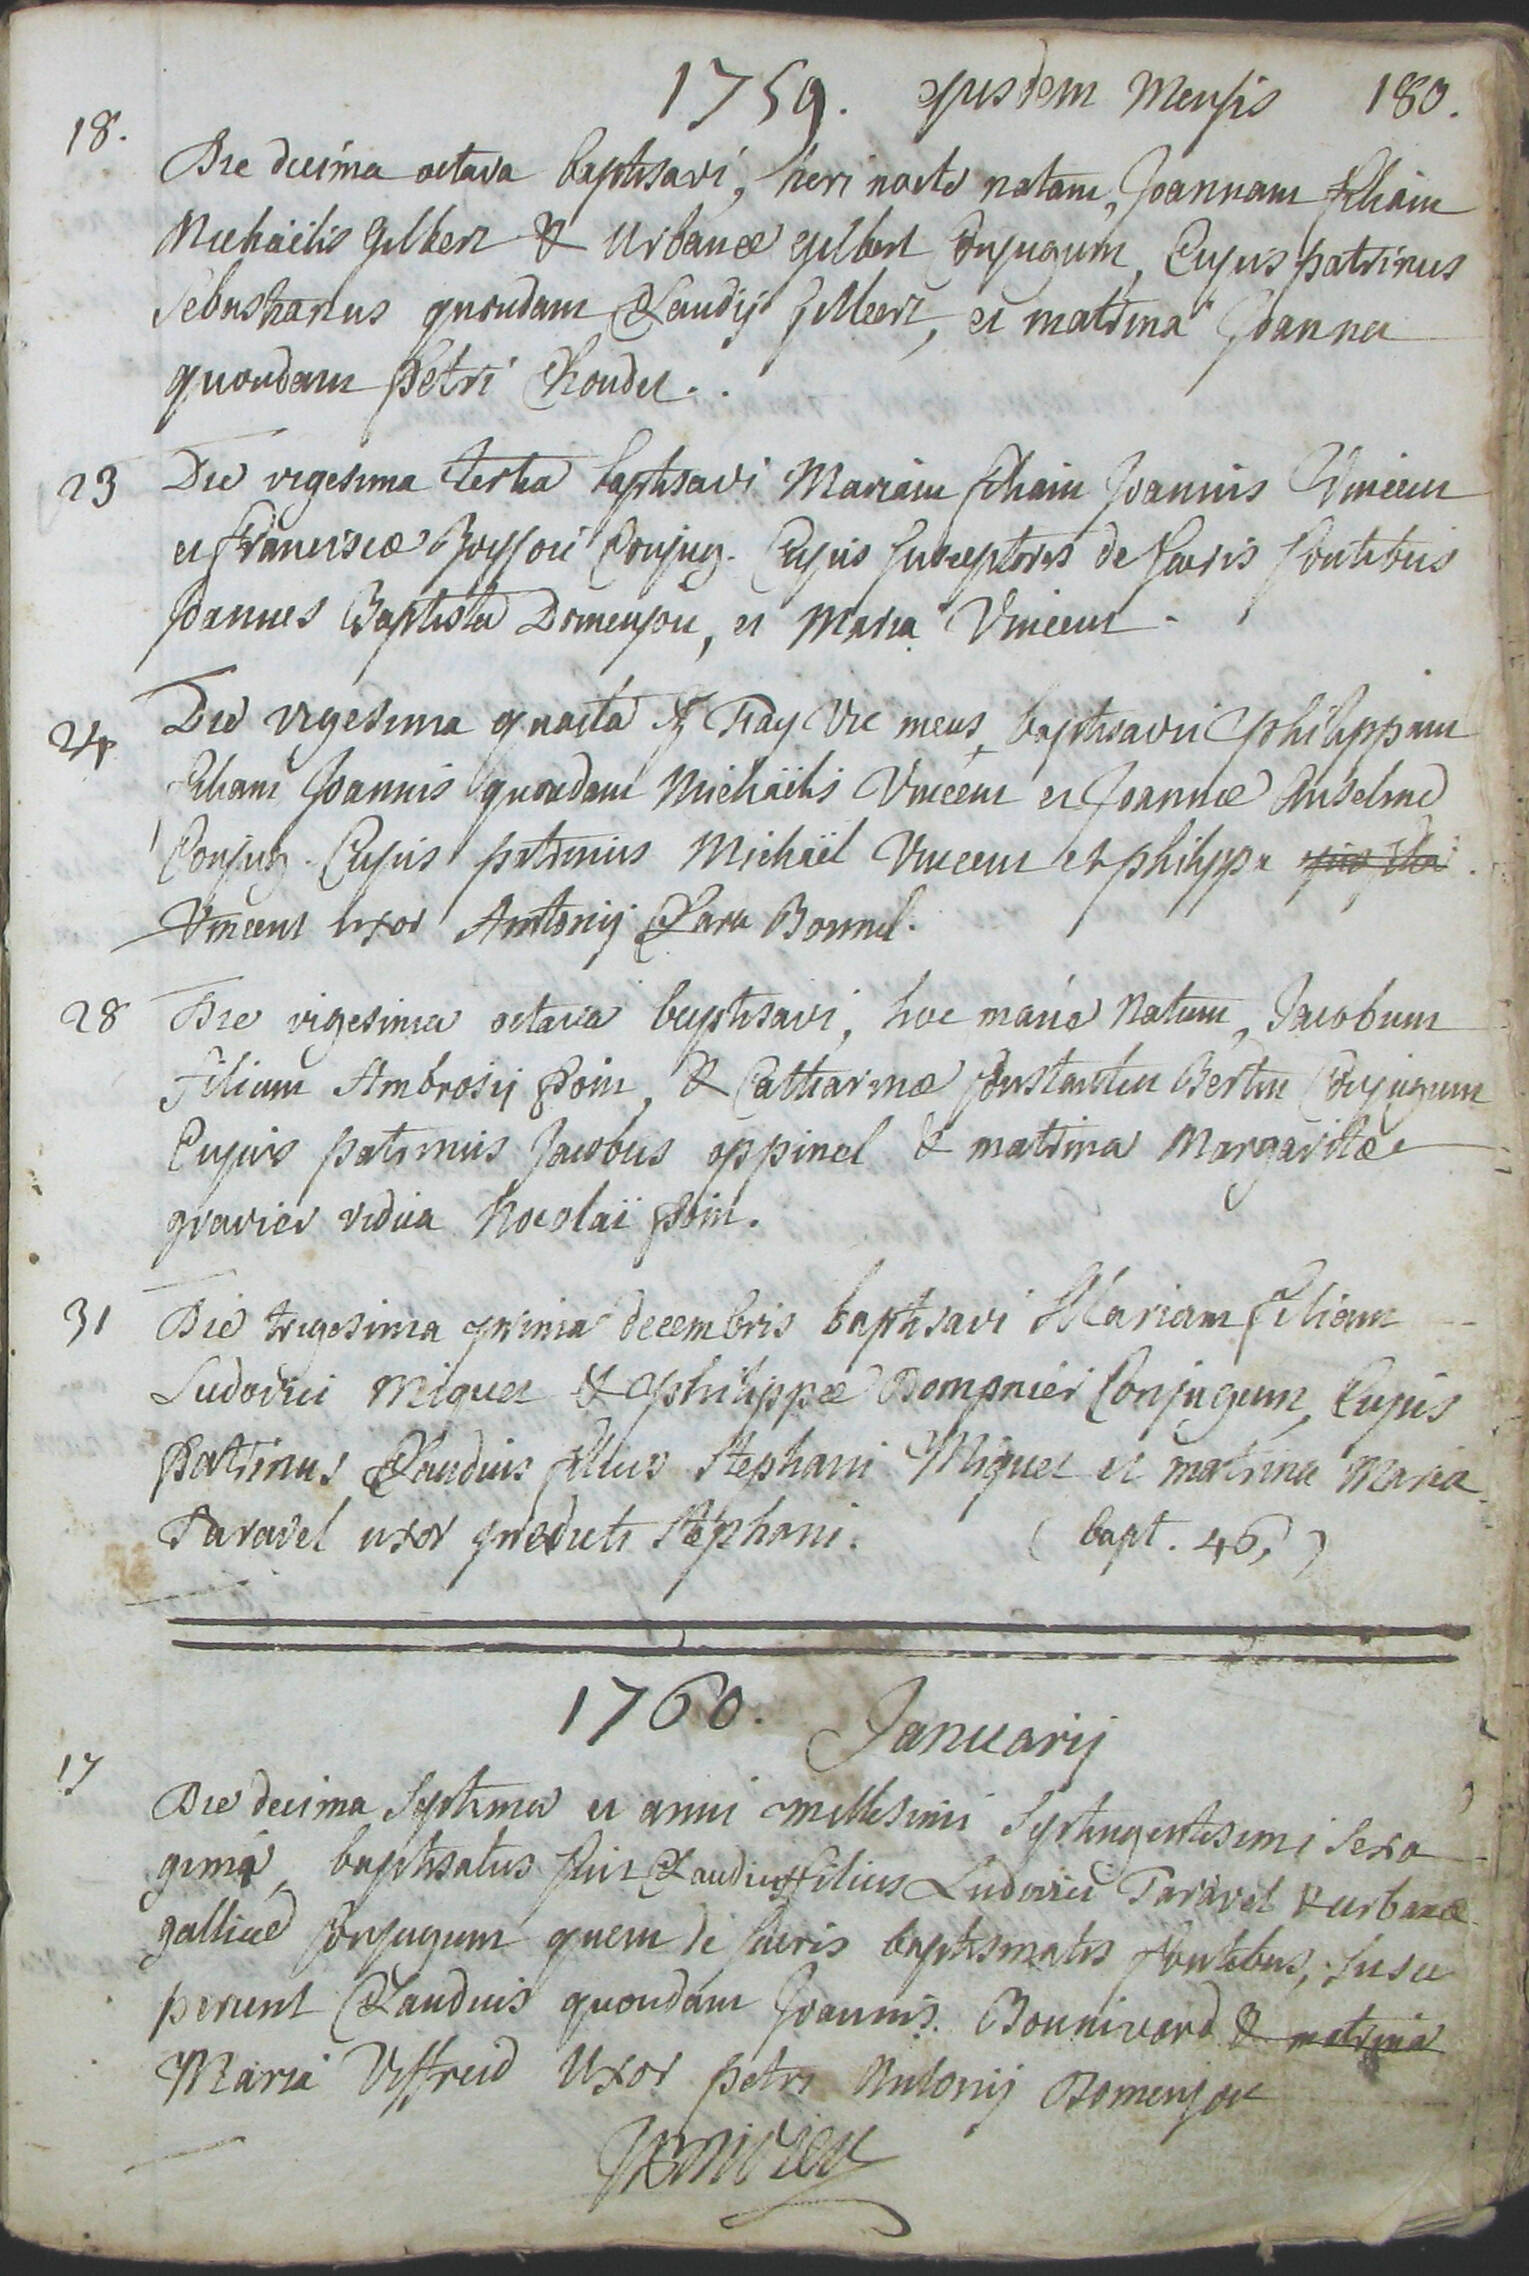 1759. ejusdem Mensis 180.
18. Die decima octava baptisavi, heri nocte natam, Joannam filiam
Michaëlis Gilbert & Urbanæ gilbert Conjugum, Cujus patrinus
Sebastianus quondam Claudij Gilbert, et matrina Joanna
quondam Petri
23 Die vigesima tertia baptisavi Mariam filiam Joannis Vincent
et Franciscæ Conjug. Cujus susceptores de sacris fontibus
Joannes Baptista Domenjou, et Maria Vincent.
24 Die vigesima quarta Vic meus baptisavit philippam
filiam Joannis quondam Michaëlis Vincent et Joannæ Anselme
Conjug. Cujus patrinus Michaël Vincent et philippa
Vincent uxor Antonij Clara Bonnel.
28 Die vigesima octava baptisavi, hoc mane Natum, Jacobum
Filium Ambrosij & Catharinæ Constantin Bertin Conjugum
Cujus patrinus Jacobus oppinel & matrina Margarita
gravier vidua Nicolaï
31 Die trigesima prima decembris baptisavi Mariam Filiam
Ludovici Miquet & philippæ Dompnier Conjugum, Cujus
Patrinus Claudius filius Stephani Miquet et matrina Maria
Taravel uxor prædicti Stephani. ( bapt. 46. )
1760. Januarij
17 Die decima Septima et anni millesimi Septingentesimi Sexa
gimi, baptisatus fuit Claudius Filius Ludovici Taravel & urbanæ
gallice Conjugum quem de sacris baptismatis fontibus, susce
perunt Claudius quondam Joannis Bonnivard & matrina
Maria Viffred Uxor petri Antonij Domenjou